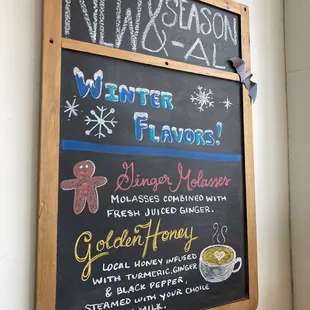 NEW & SEASON
-AL
Winter
Flavors!
Ginger Molasses
Molasses combined with
fresh juiced ginger.
Golden Honey
Local honey infused
with turmeric, ginger
& black pepper,
steamed with your choice
milk.